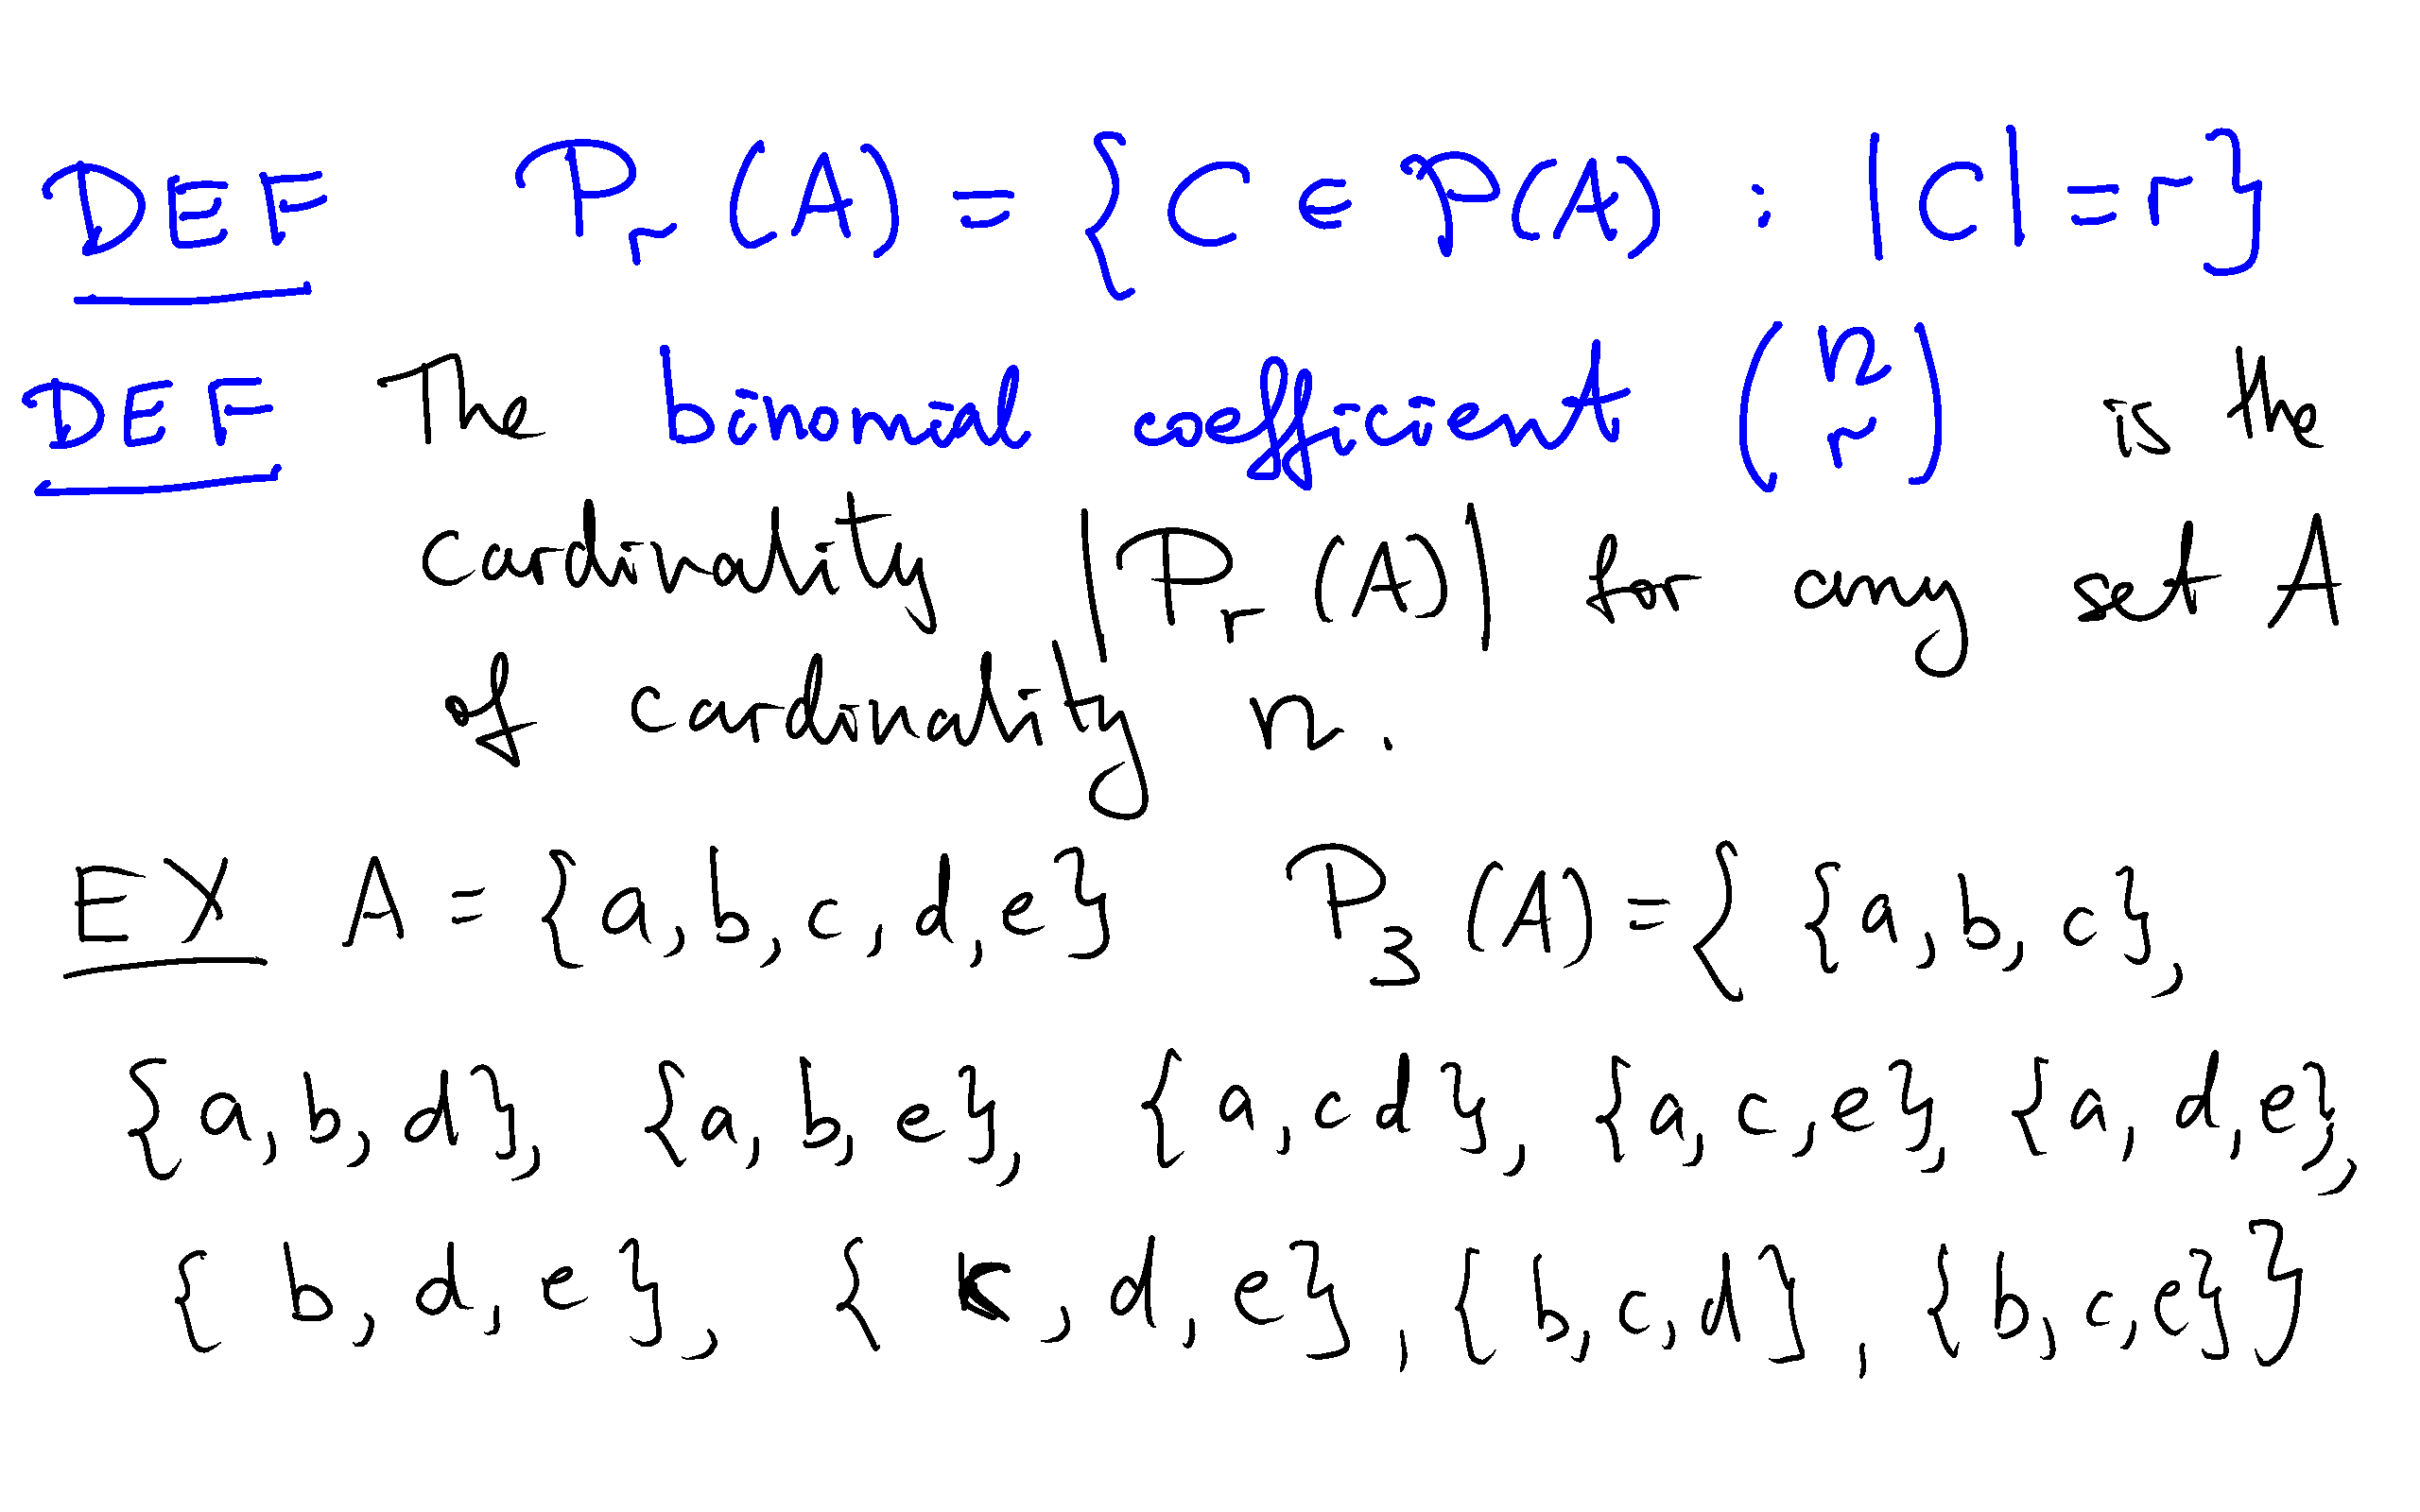 DEF P_r (A) = { C ∈ P(A) : |C| = r }
DEF The binomial coefficient (n r) is the
cardinality |P_r (A)| for any set A
of cardinality n.
EX A = {a, b, c, d, e} P_3 (A) = { {a, b, c},
{a, b, d}, {a, b, e}, {a, c d}, {a, c, e}, {a, d, e},
{b, d, e}, {c, d, e}, {b, c, d}, {b, c, e}}